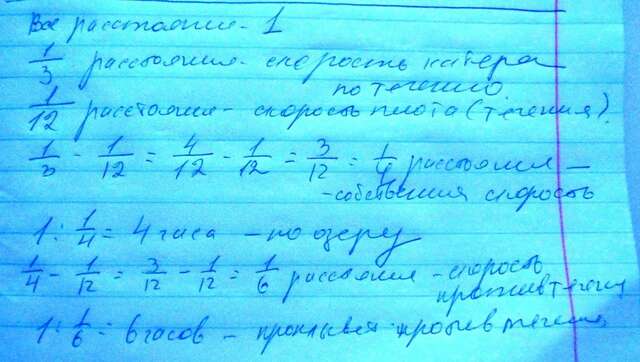 Все расстояние - 1
1/3 расстояния - скорость катера
по течению.
1/12 расстояния - скорость плота (течения).
1/3 - 1/12 = 4/12 - 1/12 = 3/12 = 1/4 расстояния -
- собственная скорость
1 : 1/4 = 4 часа - по озеру
1/4 - 1/12 = 3/12 - 1/12 = 1/6 расстояния - скорость
против течения
1 : 1/6 = 6 часов - проплывет против течения